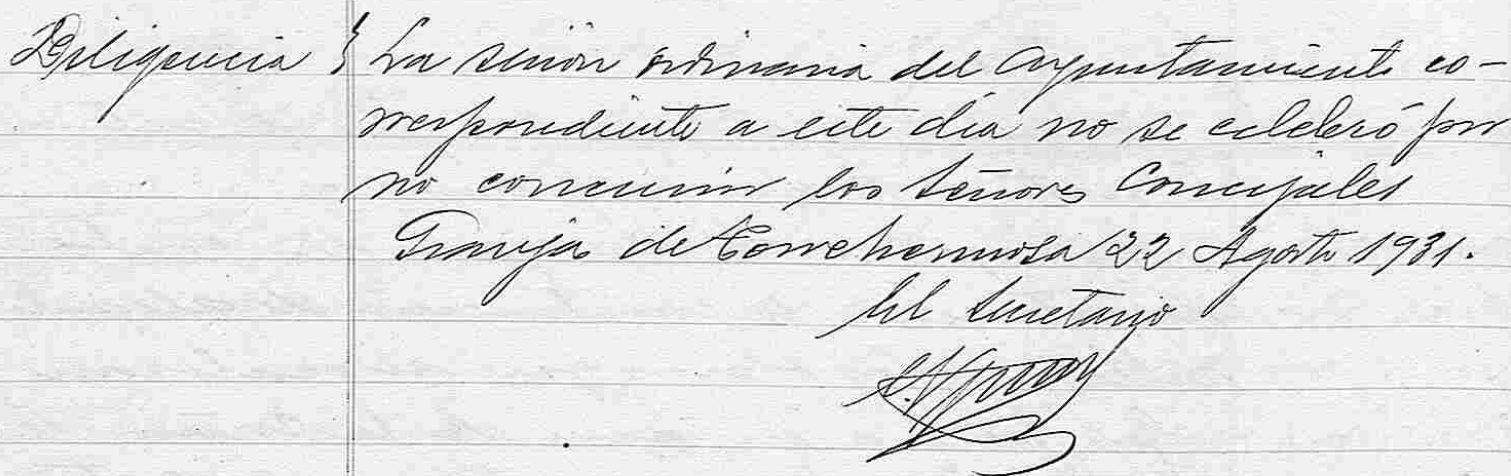 Diligencia } La sesión ordinaria del Ayuntamiento co-
rrespondiente a este día no se celebró por
no concurrir los señores Concejales
Granja de Torrehermosa 22 Agosto 1931.
El Secretario